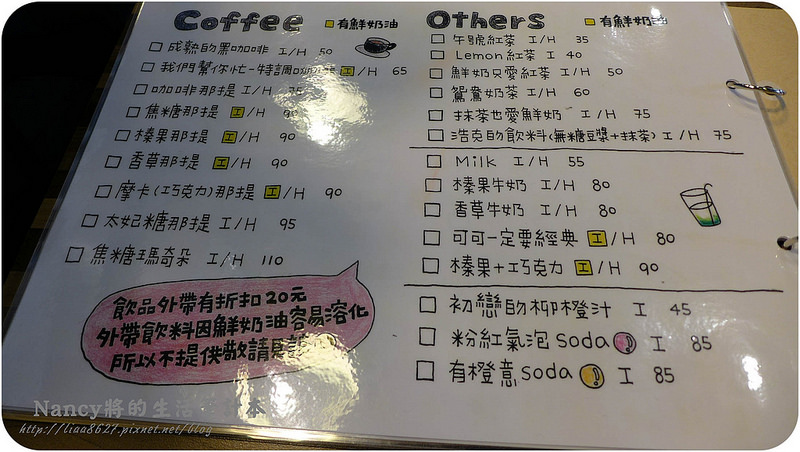 Coffee 有鮮奶油
成熟的黑咖啡 I/H 50
我們幫你忙-特調 I/H 65
咖啡那提 I/H
焦糖那提 I/H
榛果那提 I/H 90
香草那提 I/H 90
摩卡(巧克力)那提 I/H 90
太妃糖那提 I/H 95
焦糖瑪奇朵 I/H 110
飲品外帶有折扣20元
外帶飲料因鮮奶油容易溶化
所以不提供敬請見諒
Others 有鮮奶油
午號紅茶 I/H 35
Lemon紅茶 I 40
鮮奶只愛紅茶 I/H 50
鴛鴦奶茶 I/H 60
抹茶也愛鮮奶 I/H 75
浩克的飲料(無糖豆漿+抹茶) I/H 75
Milk I/H 55
榛果牛奶 I/H 80
香草牛奶 I/H 80
可可一定要經典 I/H 80
榛果+巧克力 I/H 90
初戀的柳橙汁 I 45
粉紅氣泡soda I 85
有橙意soda I 85
Nancy將的生活
http://liaa8627.pixnet.net/blog